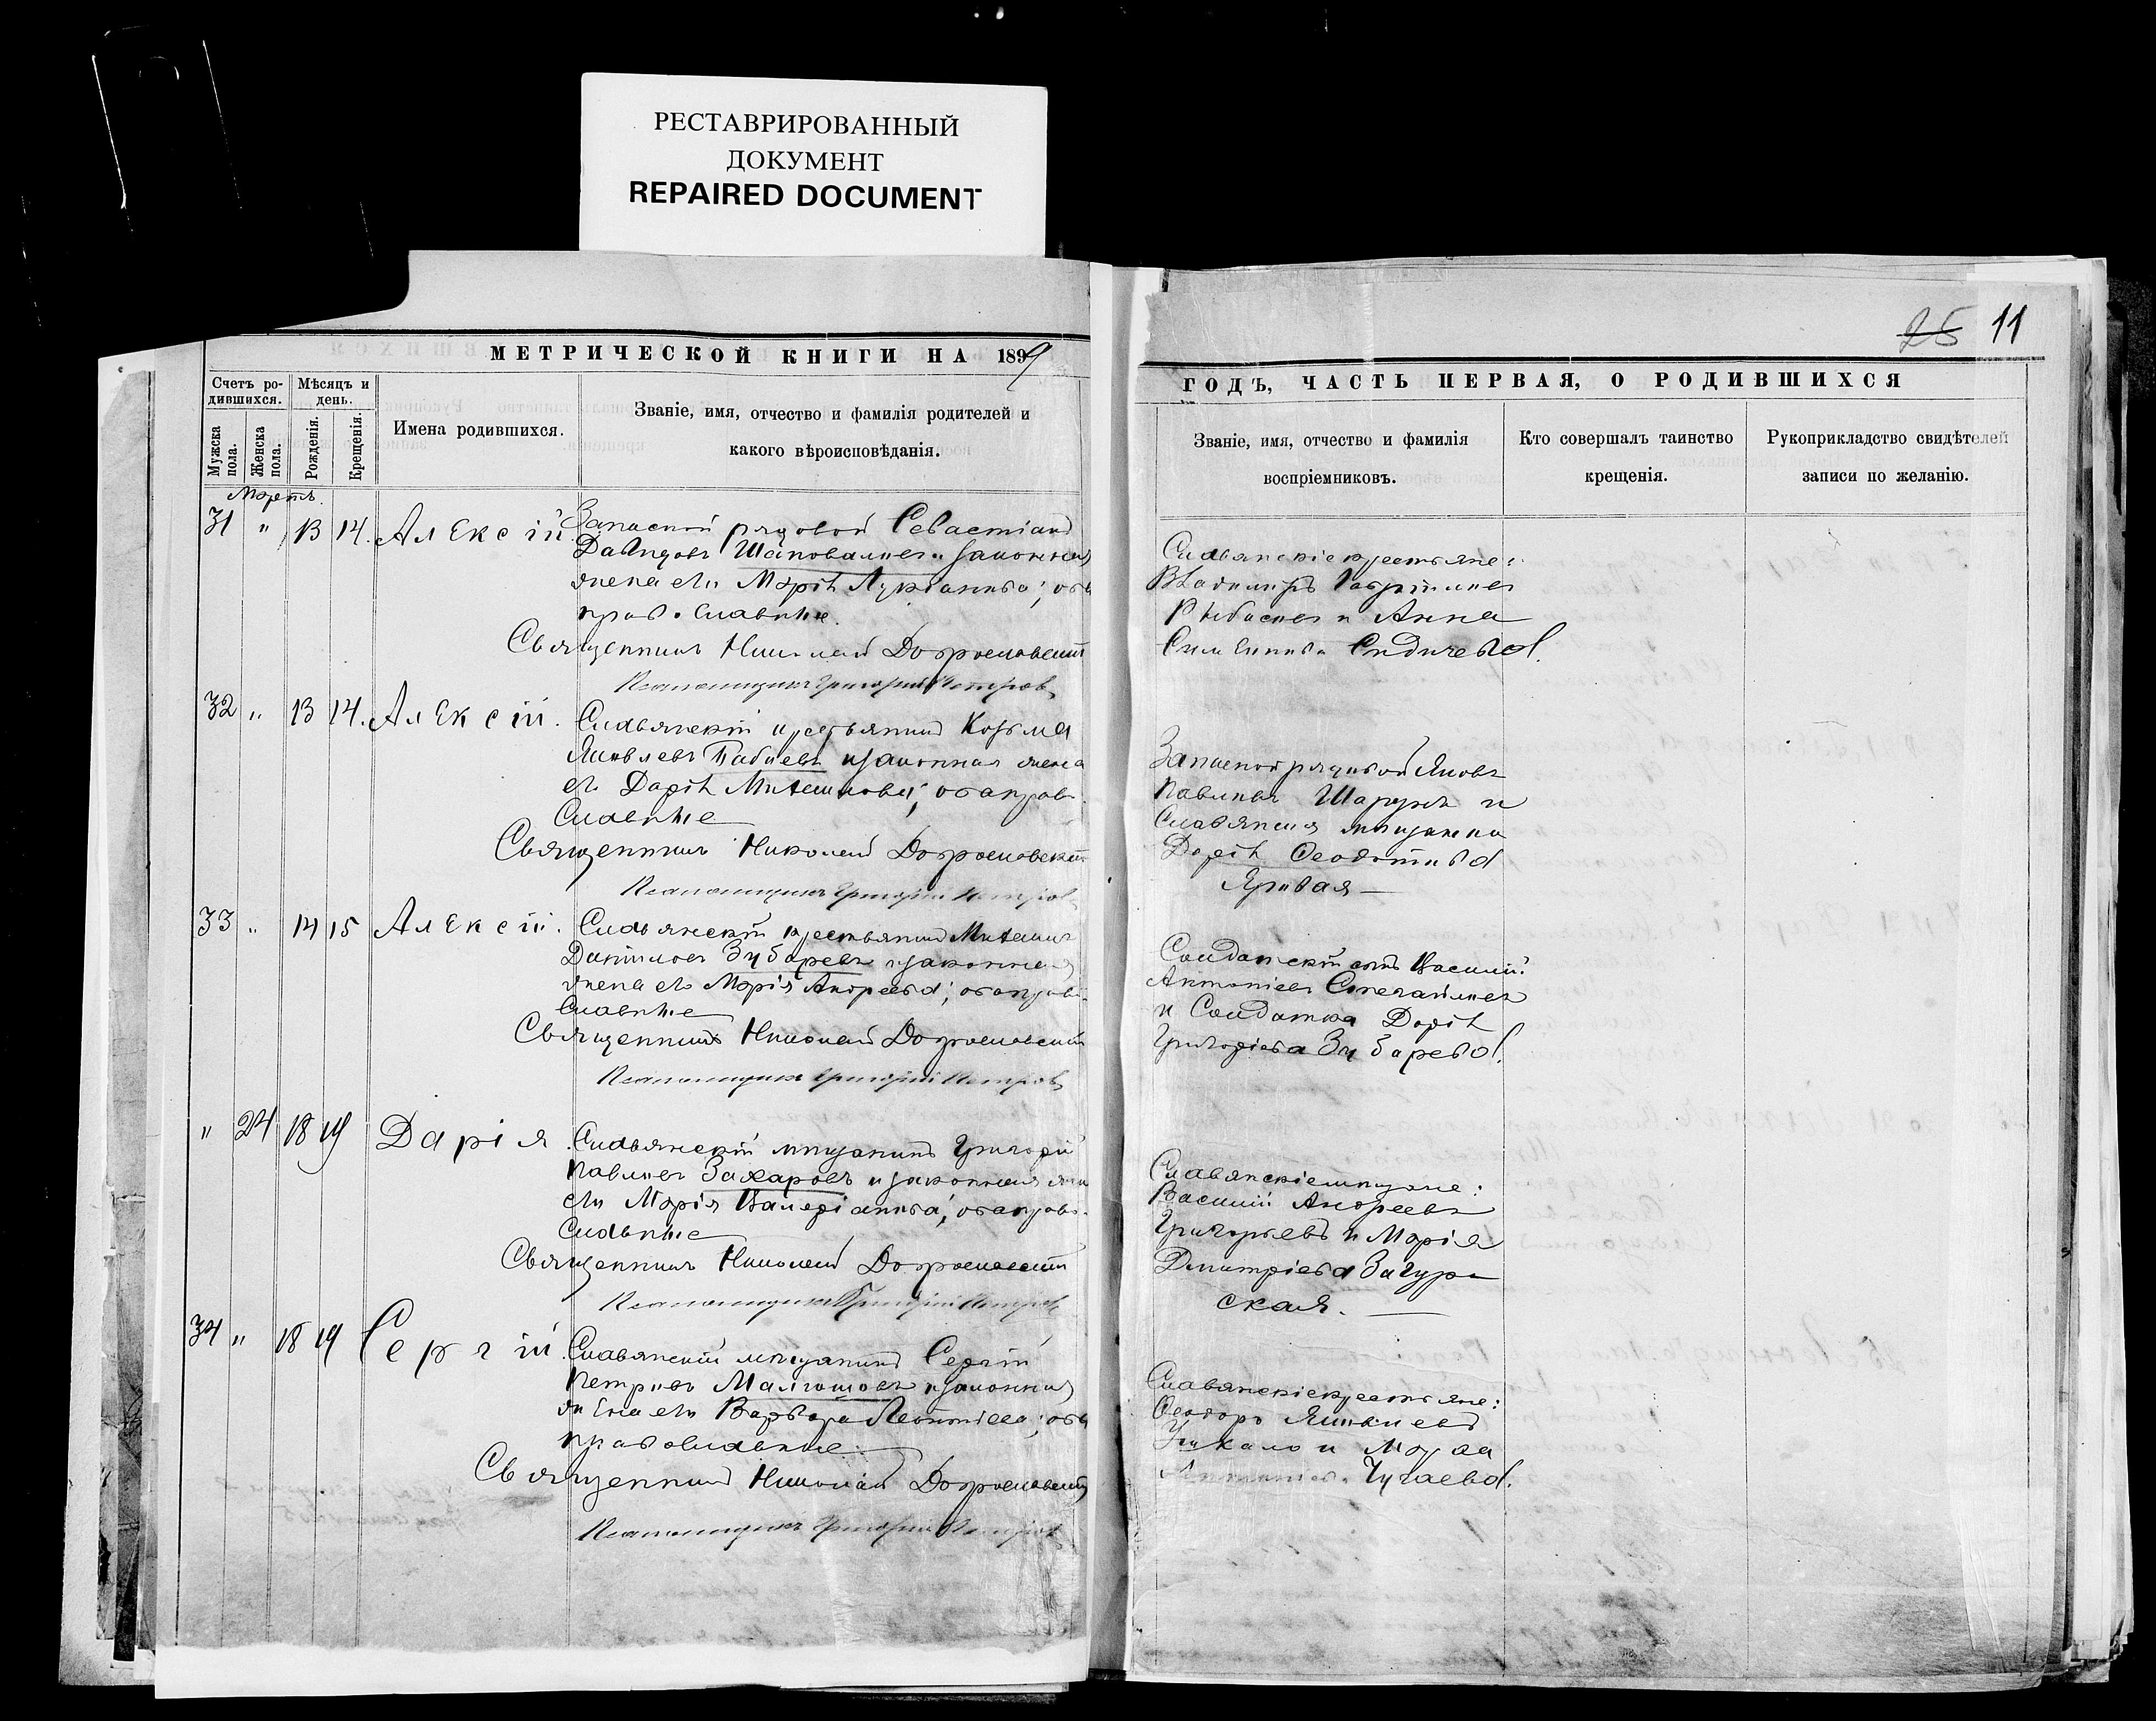 РЕСТАВРИРОВАННЫЙ
ДОКУМЕНТ
REPAIRED DOCUMENT
МЕТРИЧЕСКОЙ КНИГИ НА 1899
Счетъ ро-
дившихся.
Мѣсяцъ и
день.
Мужска
пола.
Женска
пола.
Рожденія.
Крещенія.
Имена родившихся.
Званіе, имя, отчество и фамилія родителей и
какого вѣроисповѣданія.
Мартъ.
31 " 13 14. Алексій.
Запасной рядовой Севастіанъ
Давидовъ Шаповаловъ и законная
жена его Марія Лукіанова; оба
православные.
Священникъ Николай Доброславскій
Псаломщикъ Григорій Петровъ
32 " 13 14. Алексій.
Славянскій крестьянинъ Козьма
Яковлевъ Бабаевъ и законная жена
его Дарія; оба право-
славные
Священникъ Николай Доброславскій
Псаломщикъ Григорій Петровъ
33 " 14 15 Алексій.
Славянскій крестьянинъ Михаилъ
Даниловъ Зубаревъ и законная
жена его Марія Андреева; оба право-
славные
Священникъ Николай Доброславскій
Псаломщикъ Григорій Петровъ
" 24 18 19 Дарія.
Славянскій мѣщанинъ Григорій
Павловъ Захаровъ и законная жена
его Марія Валеріанова; оба право-
славные
Священникъ Николай Доброславскій
Псаломщикъ Григорій Петровъ
34 " 18 19 Сергій.
Славянскій мѣщанинъ Сергій
Петровъ и законная
жена его Варвара Леонтіева; оба
православные.
Священникъ Николай Доброславскій
Псаломщикъ Григорій Петровъ
25 11
ГОДЪ, ЧАСТЬ ПЕРВАЯ, О РОДИВШИХСЯ
Званіе, имя, отчество и фамилія
воспріемниковъ.
Кто совершалъ таинство
крещенія.
Рукоприкладство свидѣтелей
записи по желанію.
Славянскіе крестьяне:
Владиміръ Гавриловъ
и Анна
Запасной рядовой Яковъ
Павловъ и
Славянская мѣщанка
Дарія Ѳеодотова
Яровая
Солдатскій сынъ Василій
Антоніевъ
и Солдатка Дарія
Григоріева Зубарева.
Славянскіе мѣщане:
Василій Андреевъ
Григорьевъ и Марія
Димитріева Загур-
ская.
Славянскіе крестьяне:
Ѳеодоръ Яковлевъ
и
Чучаева.